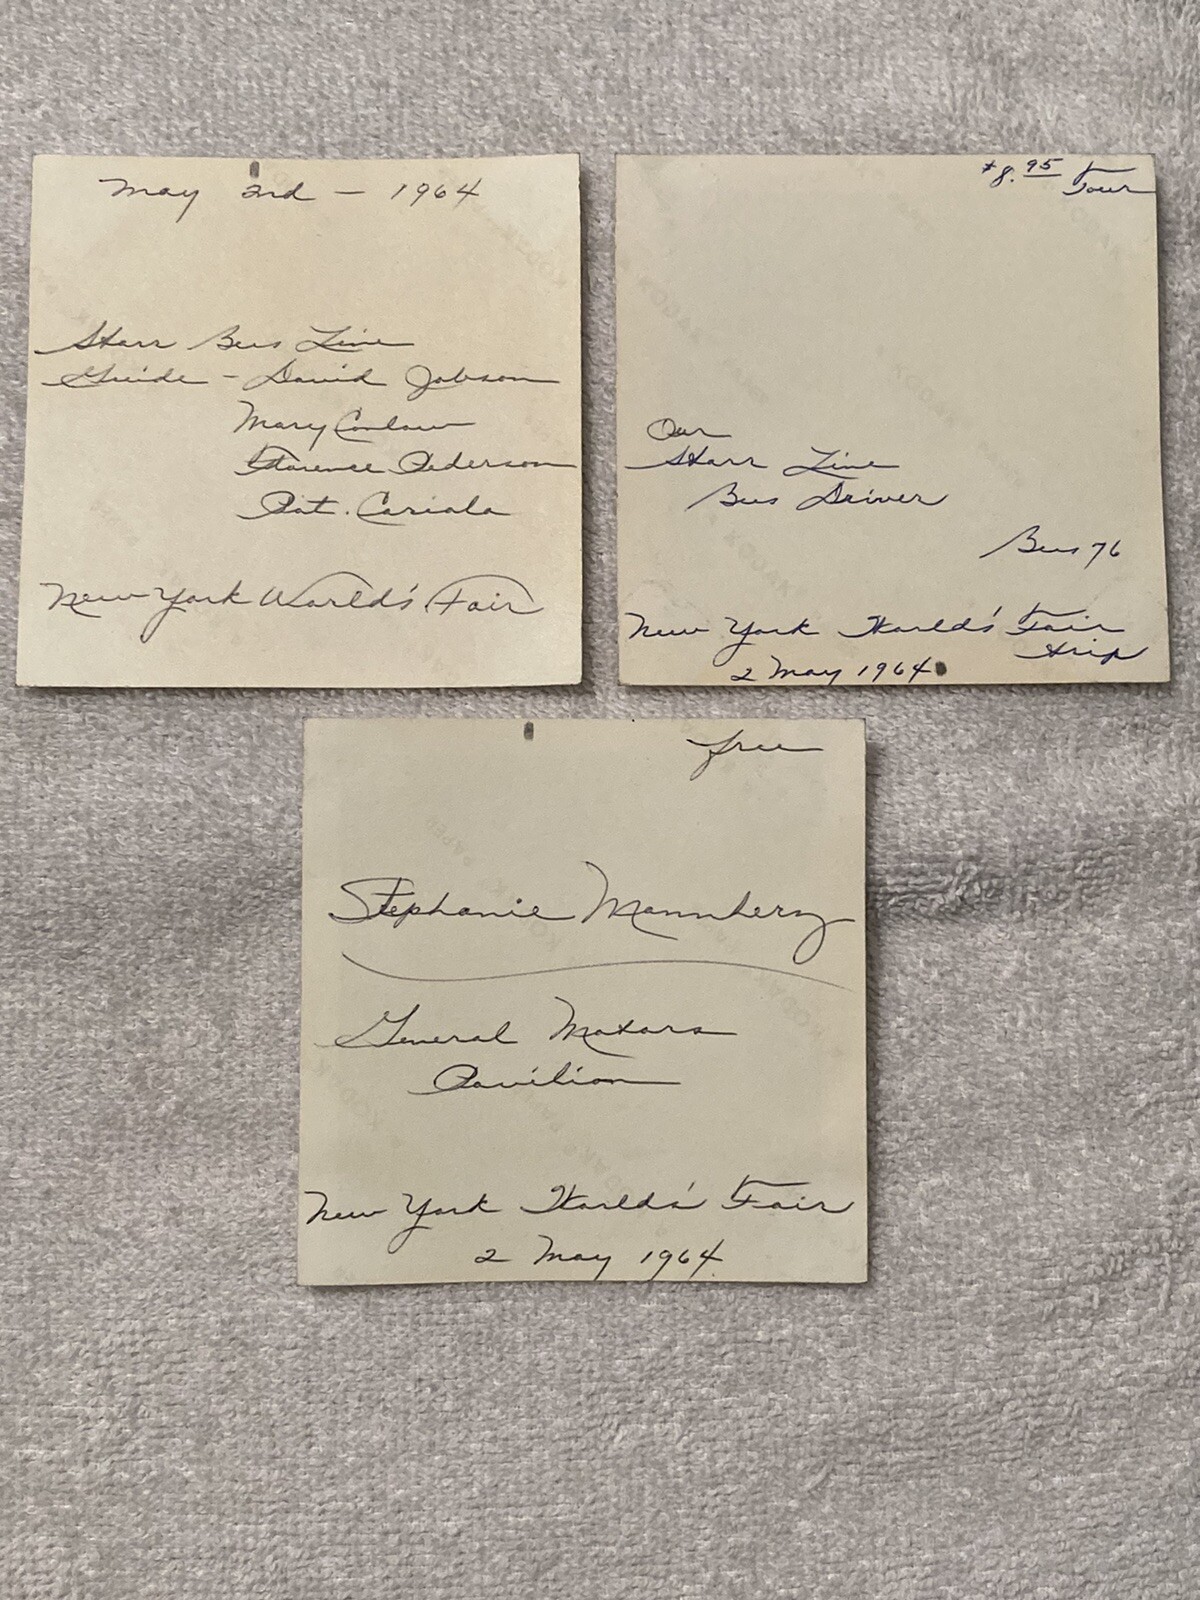 May 2nd - 1964
Starr Bus Line
Guide - David Jobson
Mary Conlaw
Florence Pederson
Pat. Cariola
New York World's Fair
$8.95 Tour
Our
Starr Line
Bus Driver
Bus 76
New York World's Fair
trip
2 May 1964
free
Stephanie Mannherz
General Motors
Pavilion
New York World's Fair
2 May 1964